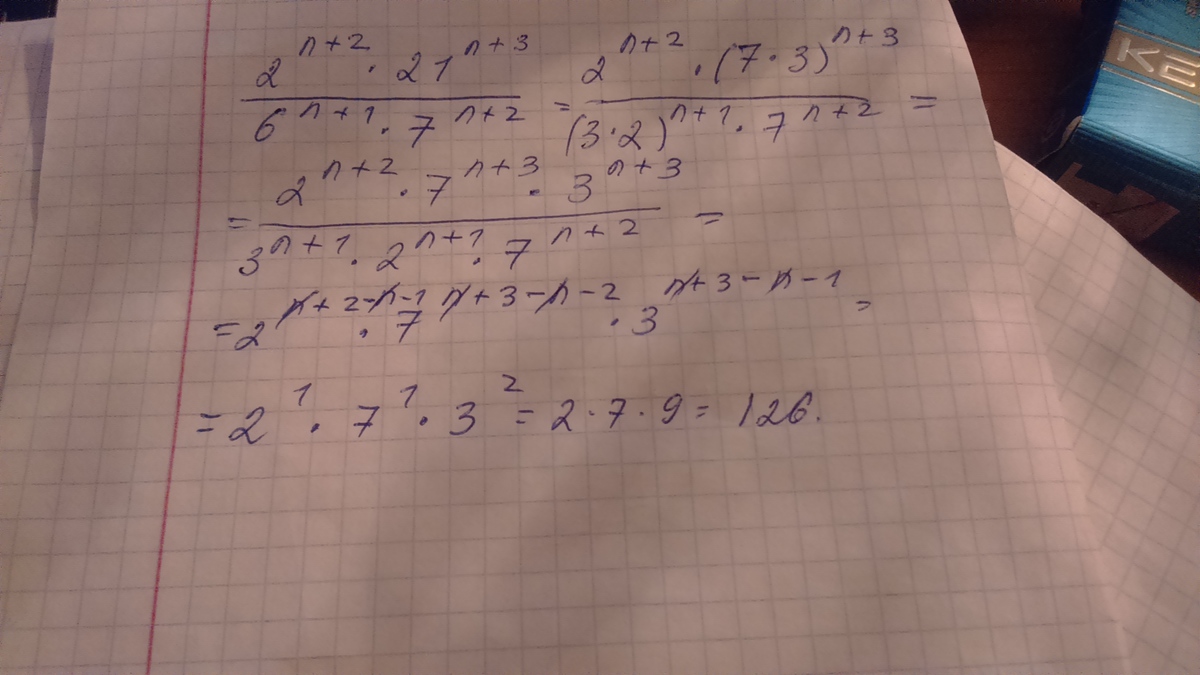 2^{n+2} · 21^{n+3} / 6^{n+1} · 7^{n+2} = 2^{n+2} · (7 · 3)^{n+3} / (3 · 2)^{n+1} · 7^{n+2} =
= 2^{n+2} · 7^{n+3} · 3^{n+3} / 3^{n+1} · 2^{n+1} · 7^{n+2} =
= 2^{n+2-n-1} · 7^{n+3-n-2} · 3^{n+3-n-1} =
= 2^1 · 7^1 · 3^2 = 2 · 7 · 9 = 126.
KE